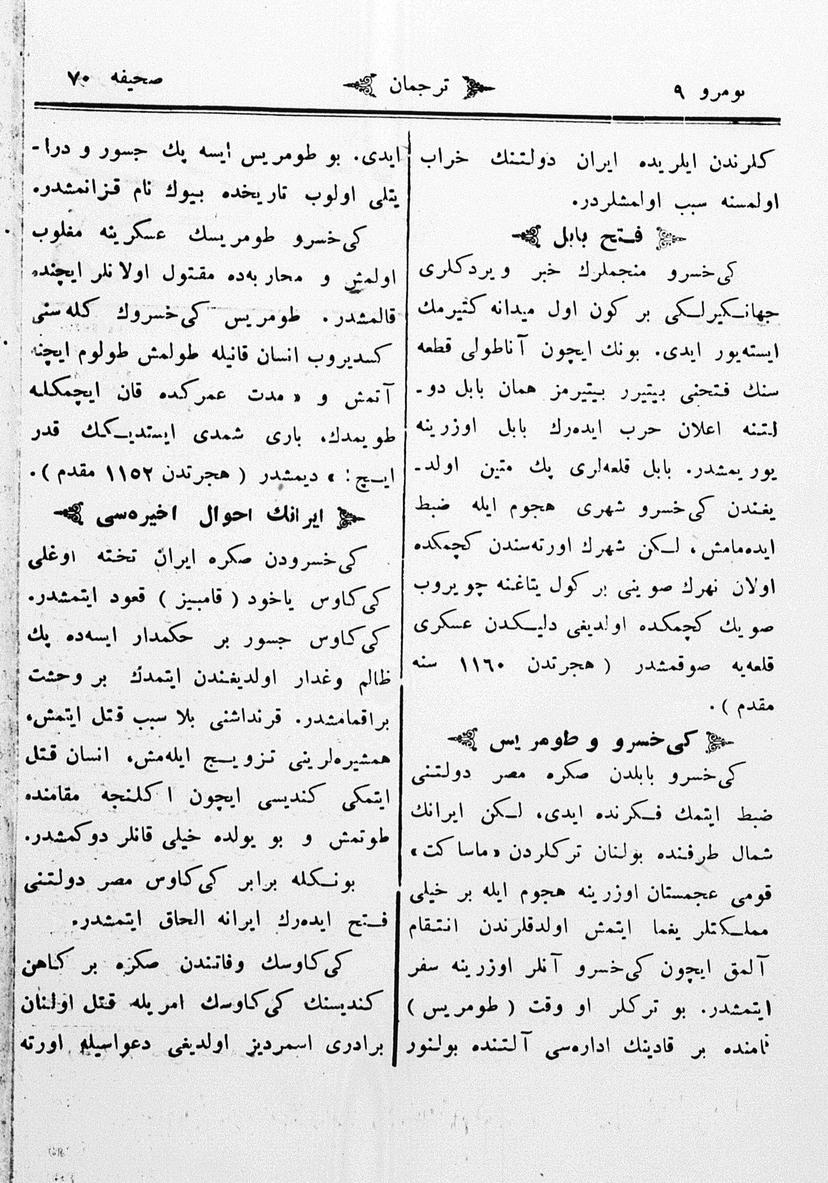 نومرو ٩
ترجمان
صحیفه ٧٠
کلرندن ایلریده ایران دولتنك خراب
اولمسنه سبب اولمشلردر.
فتح بابل
کی‌خسرو منجملرك خبر ویردکلری
جهانکیرلکی بر کون اول میدانه کتیرمك
ایسته‌یور ایدی. بونك ایچون آناطولی قطعه
سنك فتحنی بیتیرر بیتیرمز همان بابل دو-
لتنه اعلان حرب ایده‌رك بابل اوزرینه
یوریمشدر. بابل قلعه‌لری پك متین اولد-
یغندن کی‌خسرو شهری هجوم ایله ضبط
ایده‌مامش، لکن شهرك اورته‌سندن کچمکده
اولان نهرك صوینی بر کول یتاغنه چویروب
صویك کچمکده اولدیغی دلیکدن عسکری
قلعه‌یه صوقمشدر (هجرتدن ١١٦٠ سنه
مقدم).
کی‌خسرو و طومریس
کی‌خسرو بابلدن صکره مصر دولتنی
ضبط ایتمك فکرنده ایدی، لکن ایرانك
شمال طرفنده بولنان ترکلردن «ماساکت»
قومی عجمستان اوزرینه هجوم ایله بر خیلی
مملکتلر یغما ایتمش اولدقلرندن انتقام
آلمق ایچون کی‌خسرو آنلر اوزرینه سفر
ایتمشدر. بو ترکلر او وقت (طومریس)
نامنده بر قادینك اداره‌سی آلتنده بولنور
ایدی. بو طومریس ایسه پك جسور و درا-
یتلی اولوب تاریخده بیوك نام قزانمشدر.
کی‌خسرو طومریسك عسکرینه مغلوب
اولمش و محاربه‌ده مقتول اولانلر ایچنده
قالمشدر. طومریس کی‌خسروك کله‌سنی
کسدیروب انسان قانیله طولمش طولوم ایچنه
آتمش و «مدت عمرکده قان ایچمکله
طویمدك، باری شمدی ایستدیکك قدر
ایچ!» دیمشدر (هجرتدن ١١٥٢ مقدم).
ایرانك احوال اخیره‌سی
کی‌خسرودن صکره ایران تخته اوغلی
کی‌کاوس یاخود (قامبیز) قعود ایتمشدر.
کی‌کاوس جسور بر حکمدار ایسه‌ده پك
ظالم وغدار اولدیغندن ایتمدك بر وحشت
براقمامشدر. قرنداشنی بلا سبب قتل ایتمش،
همشیره‌لرینی تزویج ایله‌مش، انسان قتل
ایتمکی کندیسی ایچون اکلنجه مقامنده
طوتمش و بو یولده خیلی قانلر دوکمشدر.
بونکله برابر کی‌کاوس مصر دولتنی
فتح ایده‌رك ایرانه الحاق ایتمشدر.
کی‌کاوسك وفاتندن صکره بر کاهن
کندیسنك کی‌کاوسك امریله قتل اولنان
برادری اسمردیز اولدیغی دعواسیله اورته